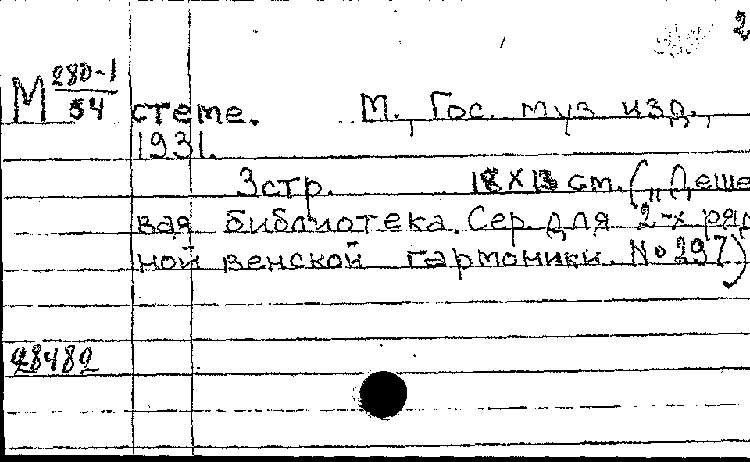 2
М 280-1/54 стеме. М., Гос. муз изд.,
1931.
3 стр. 18 х 13 cm. („Деше
вая библиотека. Сер. для 2-х ряд
ной венской гармоники. No 297)
28482